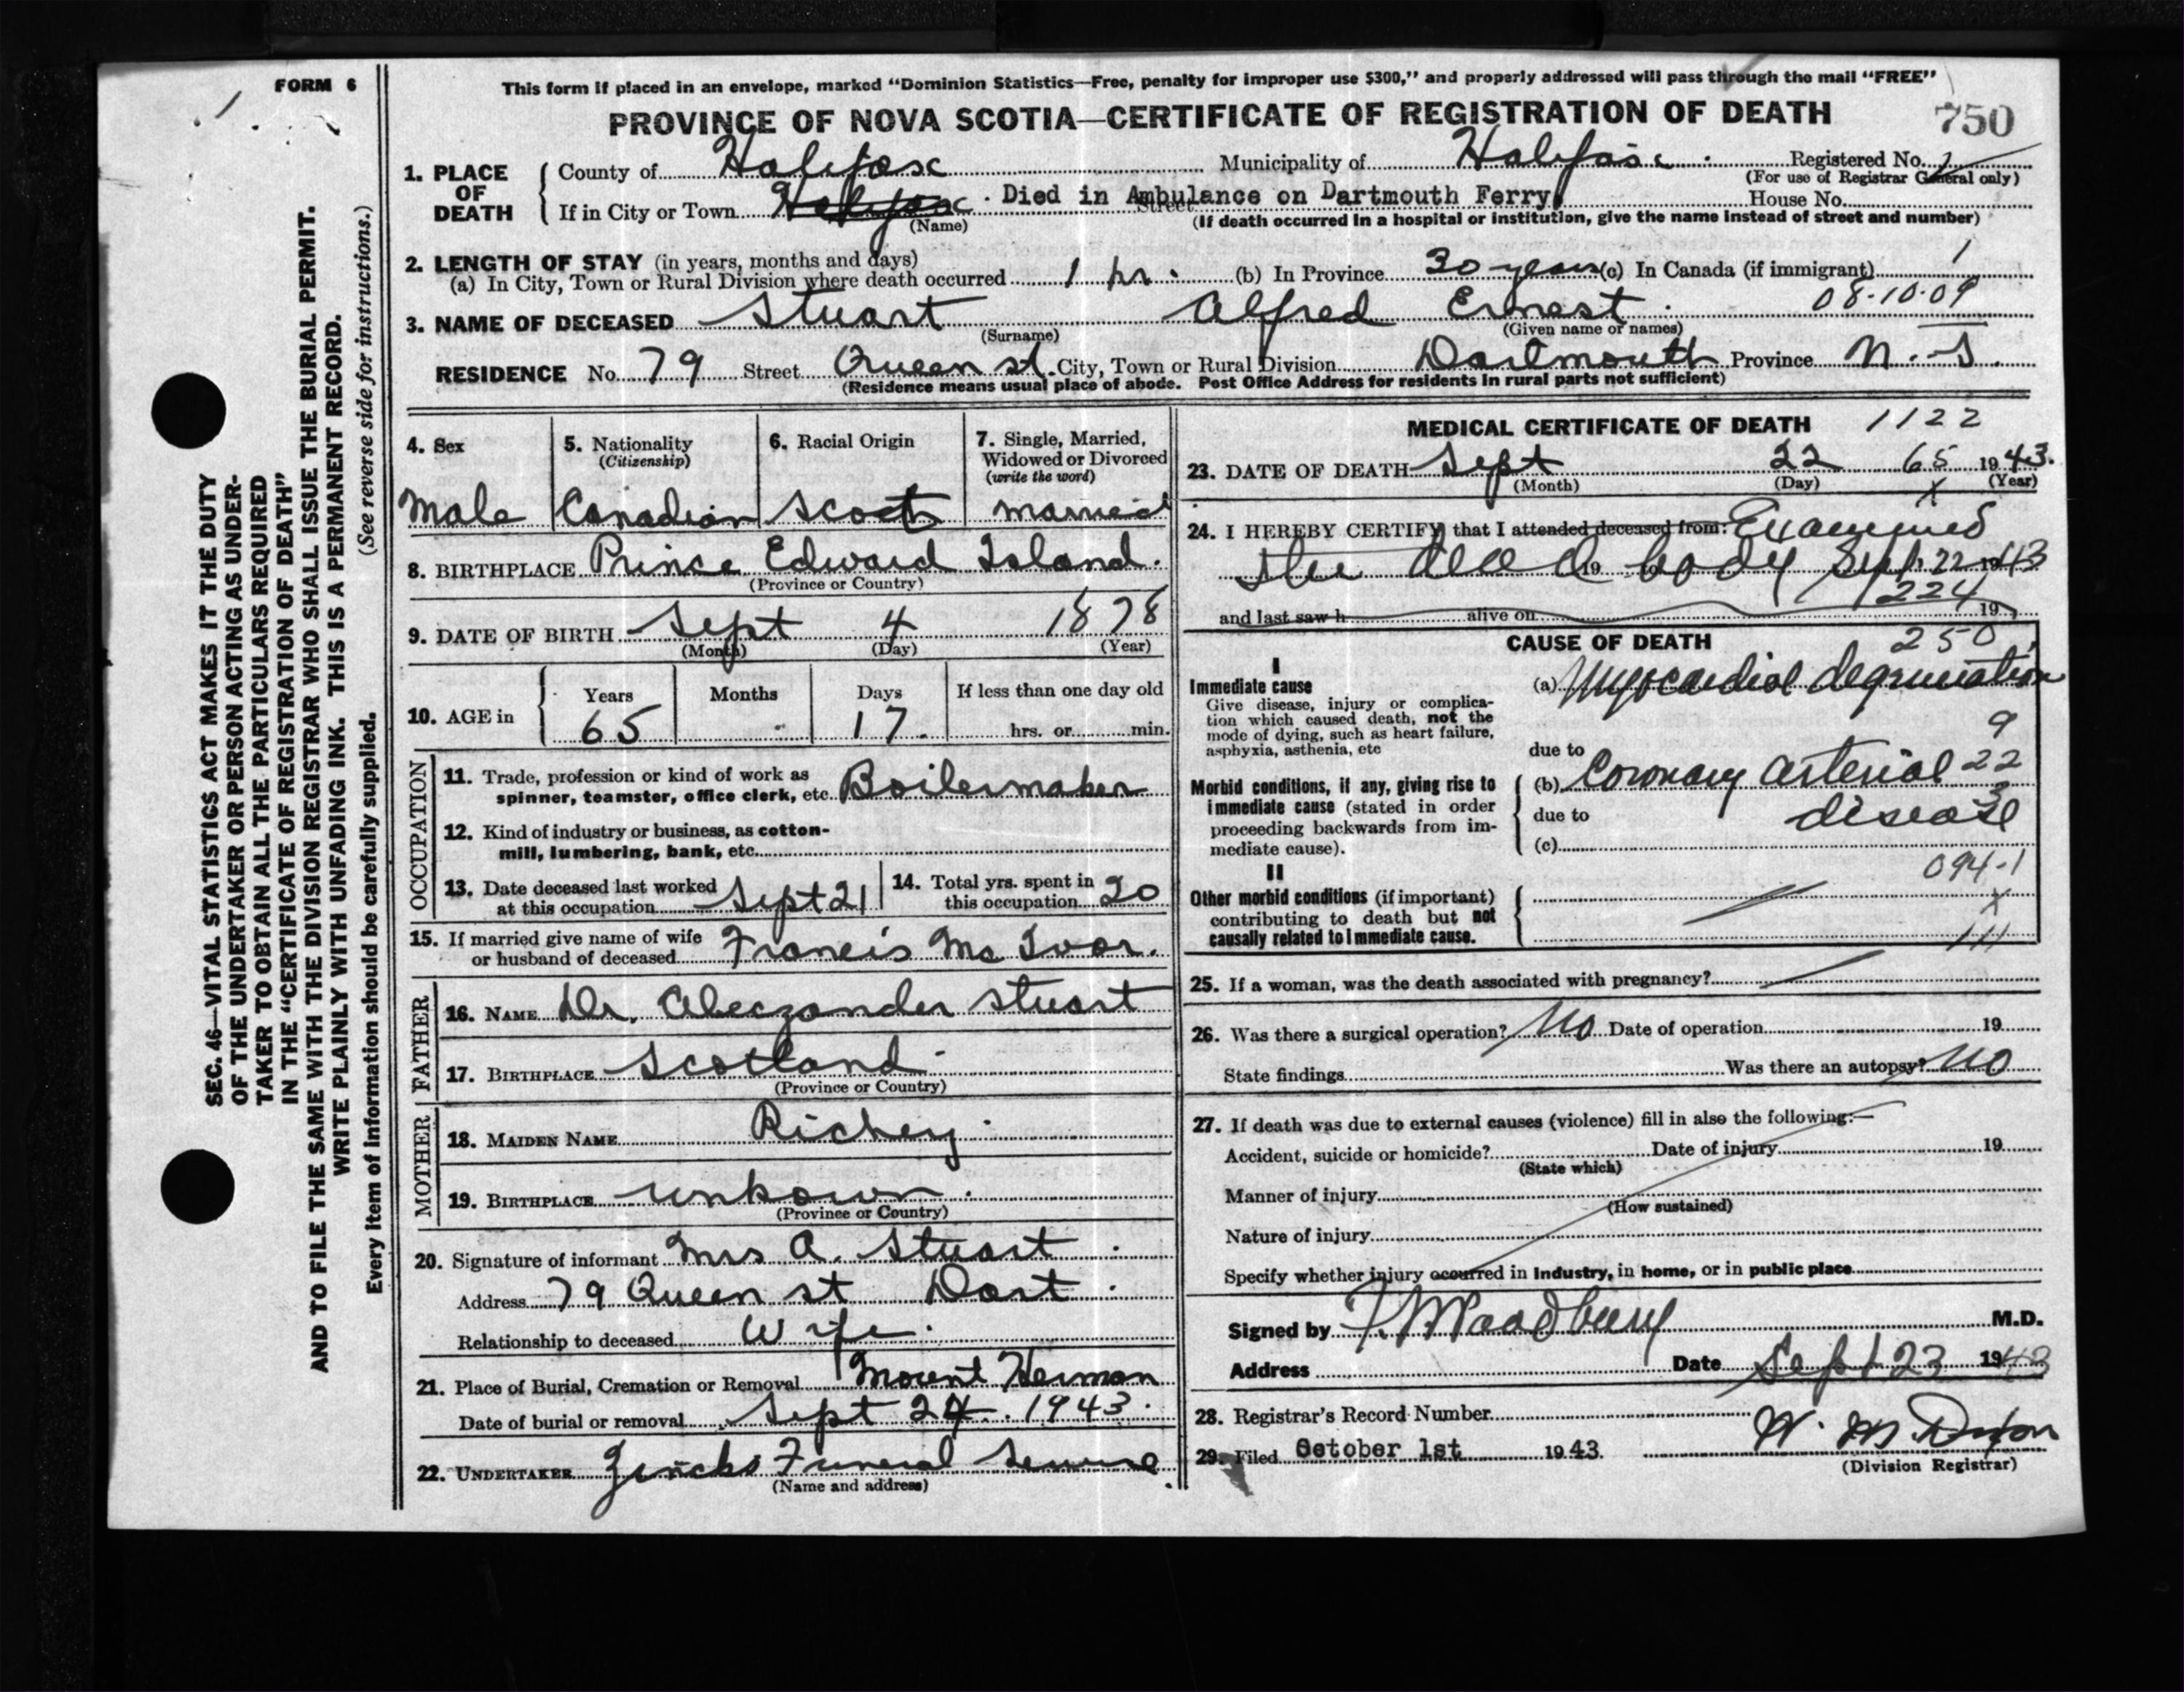 FORM 6
This form if placed in an envelope, marked "Dominion Statistics—Free, penalty for improper use $300," and properly addressed will pass through the mail "FREE"
PROVINCE OF NOVA SCOTIA—CERTIFICATE OF REGISTRATION OF DEATH
750
1. PLACE OF DEATH
County of Halifax Municipality of Halifax Registered No.
(For use of Registrar General only)
If in City or Town Halifax Died in Ambulance on Dartmouth Ferry Street House No.
(Name) (If death occurred in a hospital or institution, give the name instead of street and number)
2. LENGTH OF STAY (in years, months and days)
(a) In City, Town or Rural Division where death occurred 1 hr. (b) In Province 30 years (c) In Canada (if immigrant) 1
08-10-09
3. NAME OF DECEASED Stuart Alfred Ernest
(Surname) (Given name or names)
RESIDENCE No. 79 Street Queen st. City, Town or Rural Division Dartmouth Province N.S.
(Residence means usual place of abode. Post Office Address for residents in rural parts not sufficient)
4. Sex
Male
5. Nationality
(Citizenship)
Canadian
6. Racial Origin
Scots
7. Single, Married,
Widowed or Divorced
(write the word)
married
8. BIRTHPLACE Prince Edward Island.
(Province or Country)
9. DATE OF BIRTH Sept 4 1878
(Month) (Day) (Year)
10. AGE in Years Months Days If less than one day old
65 17. hrs. or min.
OCCUPATION
11. Trade, profession or kind of work as
spinner, teamster, office clerk, etc. Boilermaker
12. Kind of industry or business, as cotton-
mill, lumbering, bank, etc.
13. Date deceased last worked
at this occupation Sept 21
14. Total yrs. spent in
this occupation 20
15. If married give name of wife
or husband of deceased Francis Mc Ivor.
FATHER
16. NAME Dr. Aleczander Stuart
17. BIRTHPLACE Scotland
(Province or Country)
MOTHER
18. MAIDEN NAME Richey
19. BIRTHPLACE unkown.
(Province or Country)
20. Signature of informant Mrs A. Stuart
Address 79 Queen st Dart.
Relationship to deceased Wife.
21. Place of Burial, Cremation or Removal Mount Herman
Date of burial or removal Sept 24. 1943.
22. UNDERTAKER Zincks Funeral Service
(Name and address)
MEDICAL CERTIFICATE OF DEATH 1122
23. DATE OF DEATH Sept 22 65 1943.
(Month) (Day) (Year)
24. I HEREBY CERTIFY that I attended deceased from: Examined
the dead body Sept. 22 1943
224
and last saw h alive on 19
CAUSE OF DEATH
250
I
Immediate cause
Give disease, injury or complica-
tion which caused death, not the
mode of dying, such as heart failure,
asphyxia, asthenia, etc
(a) Myocardial degeneration
9
due to
Morbid conditions, if any, giving rise to
immediate cause (stated in order
proceeding backwards from im-
mediate cause).
(b) Coronary arterial 22
due to disease
(c)
094-1
II
Other morbid conditions (if important)
contributing to death but not
causally related to immediate cause.
25. If a woman, was the death associated with pregnancy?
26. Was there a surgical operation? No Date of operation 19
State findings Was there an autopsy? No
27. If death was due to external causes (violence) fill in also the following:—
Accident, suicide or homicide? Date of injury 19
(State which)
Manner of injury
(How sustained)
Nature of injury
Specify whether injury occurred in industry, in home, or in public place
Signed by Woodbury M.D.
Address Date Sept 23 1943
28. Registrar's Record Number
29. Filed October 1st 1943. W. M. Dixon
(Division Registrar)
SEC. 46—VITAL STATISTICS ACT MAKES IT THE DUTY
OF THE UNDERTAKER OR PERSON ACTING AS UNDER-
TAKER TO OBTAIN ALL THE PARTICULARS REQUIRED
IN THE "CERTIFICATE OF REGISTRATION OF DEATH"
AND TO FILE THE SAME WITH THE DIVISION REGISTRAR WHO SHALL ISSUE THE BURIAL PERMIT.
WRITE PLAINLY WITH UNFADING INK. THIS IS A PERMANENT RECORD.
(See reverse side for instructions.)
Every item of information should be carefully supplied.